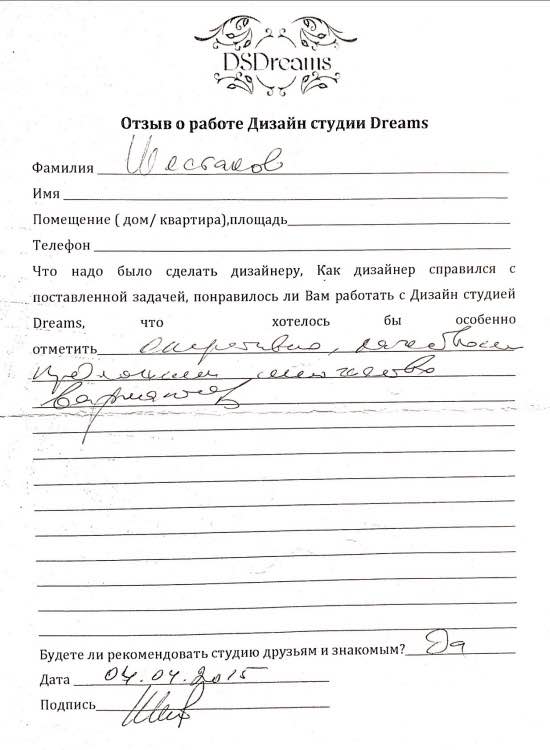 DSDreams
Отзыв о работе Дизайн студии Dreams
Фамилия Шестаков
Имя
Помещение ( дом/ квартира),площадь
Телефон
Что надо было сделать дизайнеру, Как дизайнер справился с
поставленной задачей, понравилось ли Вам работать с Дизайн студией
Dreams, что хотелось бы особенно
отметить оперативно, качественно
предложили множество
вариантов
Будете ли рекомендовать студию друзьям и знакомым? Да
Дата 04.04.2015
Подпись